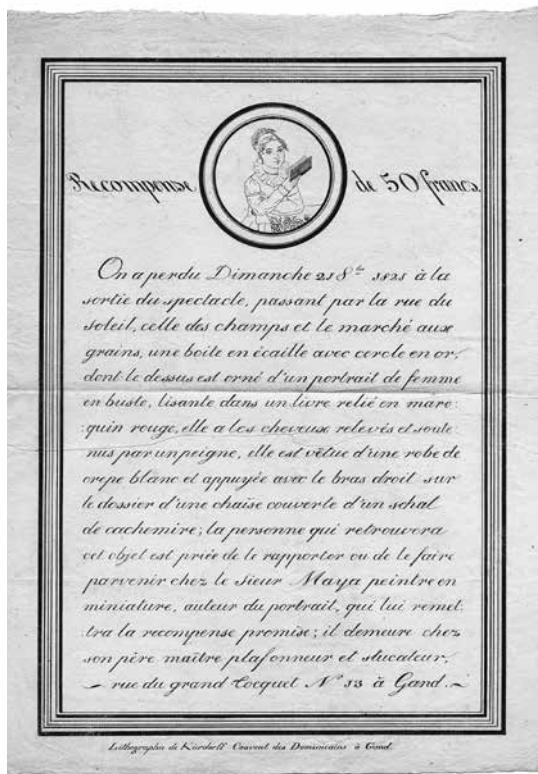 Recompense de 50 francs.
On a perdu Dimanche 21 8.bre 1821 à la
sortie du spectacle, passant par la rue du
soleil, celle des champs et le marché aux
grains, une boite en écaille avec cercle en or,
dont le dessus est orné d'un portrait de femme
en buste, lisante dans un livre relié en maro:
:quin rouge, elle a les cheveux relevés et soute
nus par un peigne, elle est vêtue d'une robe de
crepe blanc et appuyée avec le bras droit sur
le dossier d'une chaise couverte d'un schal
de cachemire; la personne qui retrouvera
cet objet est priée de le rapporter ou de le faire
parvenir chez le Sieur Maya peintre en
miniature, auteur du portrait, qui lui remet:
tra la recompense promise; il demeure chez
son père maître plafonneur et stucateur,
— rue du grand Tocquet N.° 13 à Gand. —
Lithographie de Kierdorff Couvent des Dominicains à Gand.